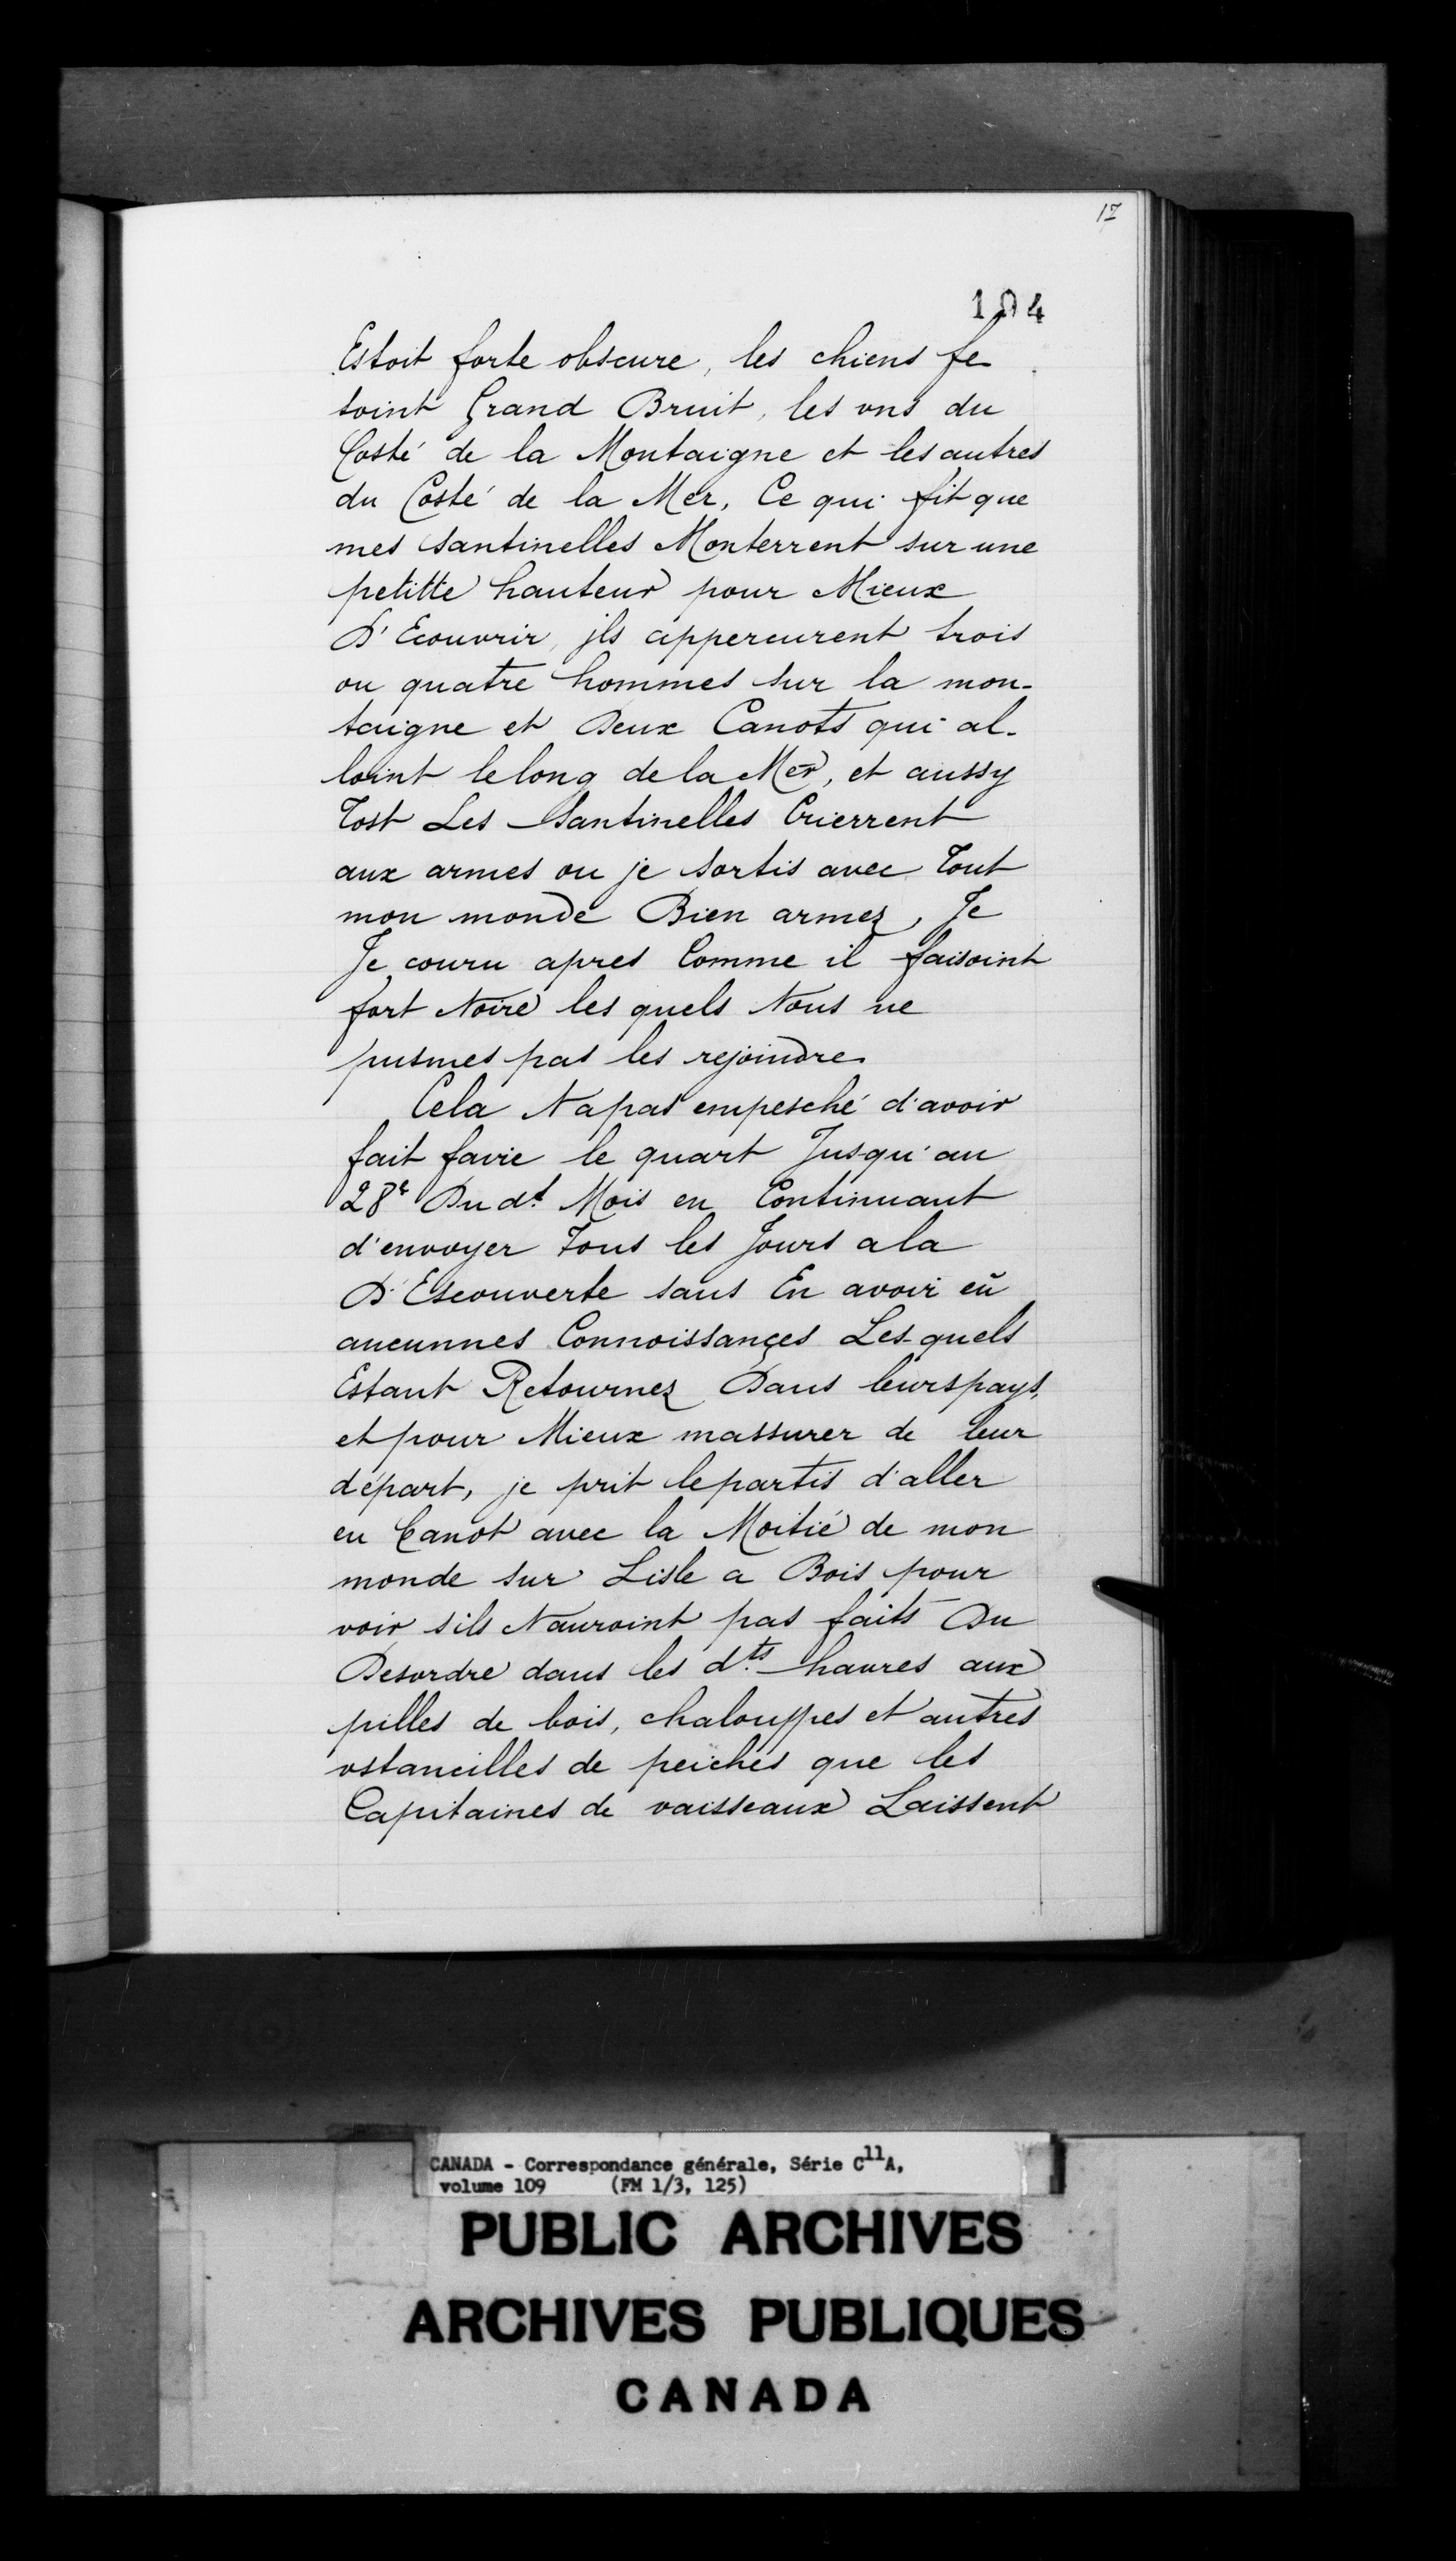 17
104
Estoit forte obscure, les chiens fe
soint Grand Bruit, les vns du
Costé de la Montaigne et les autres
du Costé de la Mer, Ce qui fit que
mes santinelles Monterrent sur une
petitte hauteur pour Mieux
D'Ecouvrir, jls appercurent trois
ou quatre hommes sur la mon-
taigne et Deux Canots qui al-
loint le long de la Mer, et aussy
Tost Les Santinelles Crierrent
aux armes ou je sortis avec Tout
mon monde Bien armez, Je
Je couru apres Comme il faisoint
fort Noire les quels Nous ne
pusmes pas les rejoindre
Cela Na pas empesché d'avoir
fait favie le quart Jusqu'au
28e Du dt. Mois en Continuant
d'envoyer Tous les Jours a la
D'Escouverte sans En avoir eü
aucunnes Connoissançes Les quels
Estant Retournez Dans leurs pays,
et pour Mieux massurer de leur
départ, je prit le partis d'aller
en Canot avec la Moitié de mon
monde sur Lisle a Bois pour
voir sils Nauroint pas faits Du
Desordre dans les dts. havres aux
pilles de bois, chalouppes et autres
vstancilles de peiches que les
Capitaines de vaisseaux Laissent
CANADA - Correspondance générale, Série C11A,
volume 109 (FM 1/3, 125)
PUBLIC ARCHIVES
ARCHIVES PUBLIQUES
CANADA